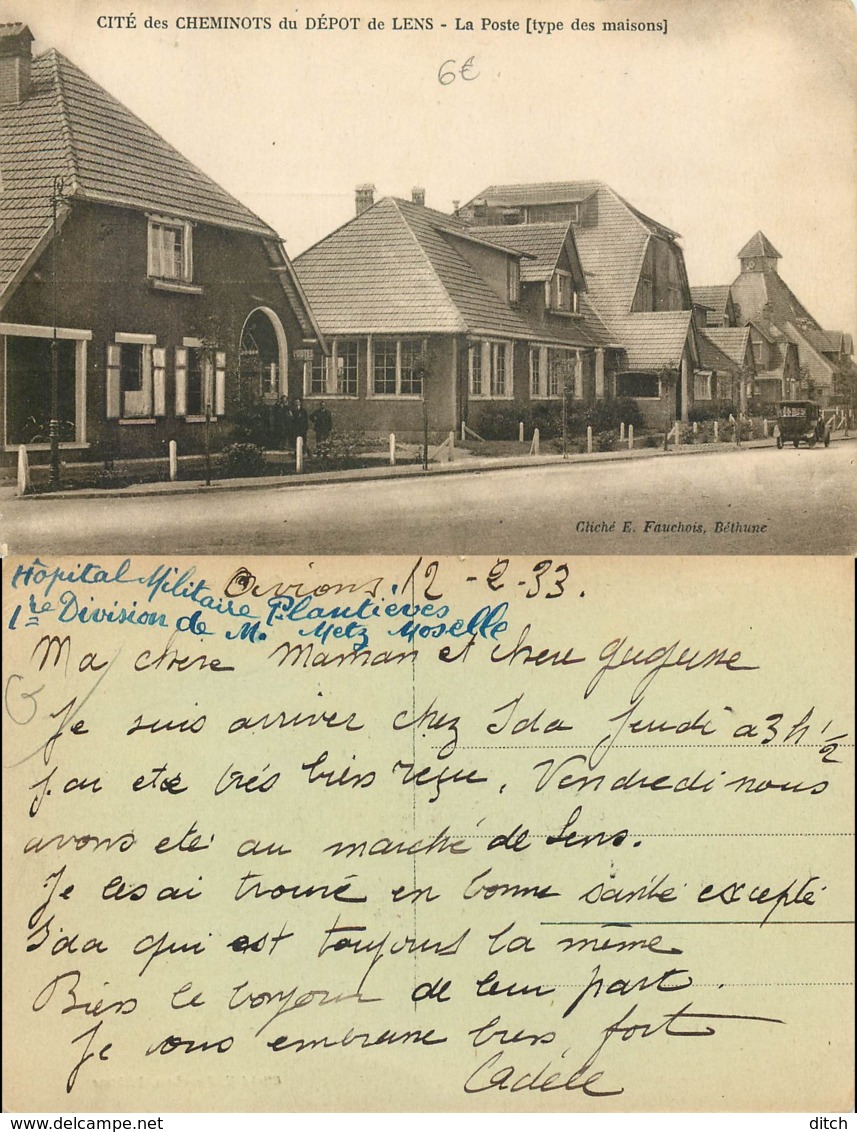 CITÉ des CHEMINOTS du DÉPOT de LENS - La Poste [type des maisons]
6€
Cliché E. Fauchois, Béthune
Hôpital Militaire Plantières
1re Division de M. Metz Moselle
Avions 12-2-33.
Ma chère Maman et cheu Gugusse
Je suis arriver chez Ida Jeudi a 3 h 1/2
J'ai ete très bien reçu. Vendredi nous
avons eté au marché de Lens.
Je les ai trouvé en bonne santé excepté
Ida qui est toujours la même
Bien le bonjour de leur part.
Je vous embrasse bien fort
Adèle
ditch
delcampe.net